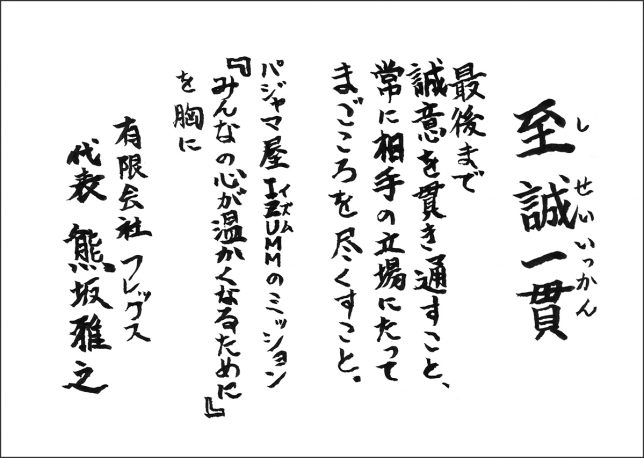 至誠一貫
しせいいっかん
最後まで
誠意を貫き通すこと、
常に相手の立場にたって
まごころを尽くすこと。
パジャマ屋IZUMMのミッション
イズム
『みんなの心が温かくなるために』
を胸に
有限会社フレックス
代表 熊坂雅之